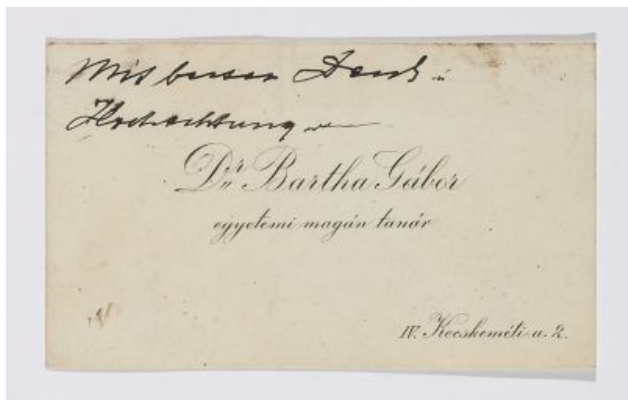 Mit bestem Dank u
Hochachtung
Dr. Bartha Gábor
egyetemi magán tanár
IV. Kecskeméti u. 2.